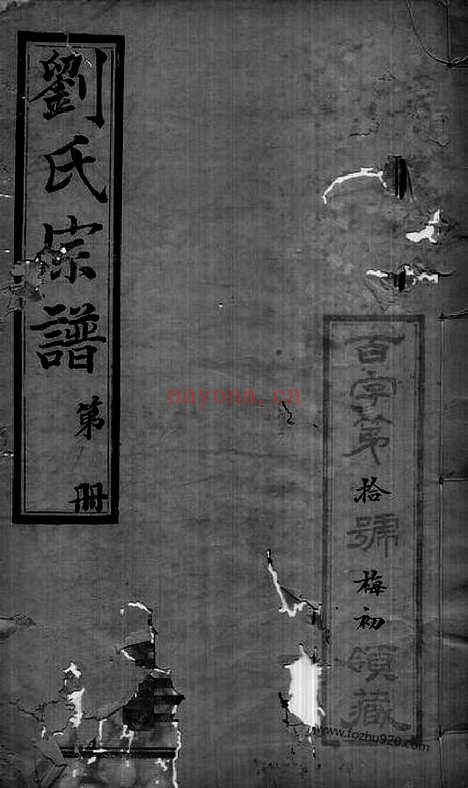 劉氏宗譜
第 冊
百字第拾號梅初領藏
nayona.cn
www.fozhu920.com